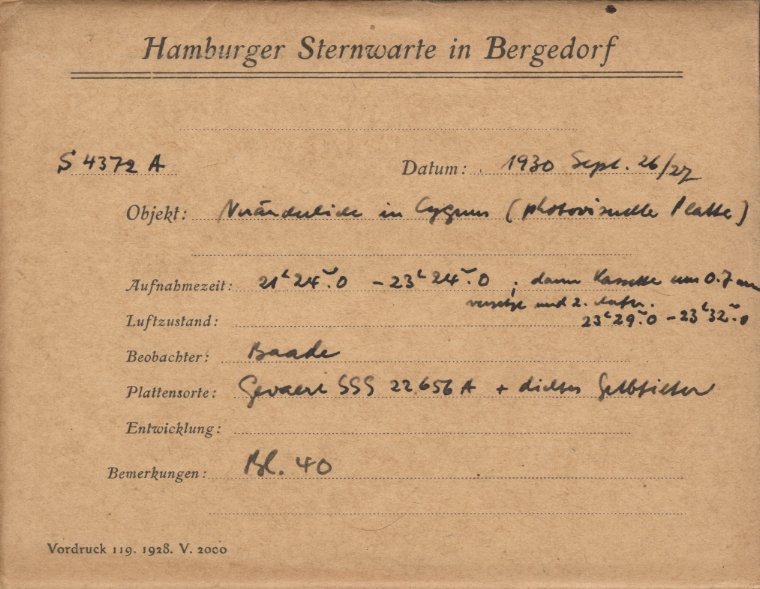 Hamburger Sternwarte in Bergedorf
S 4372 A Datum: 1930 Sept. 26/27
Objekt: Veränderliche in Cygnus (photovisuelle Platte)
Aufnahmezeit: 21ʰ24ᵐ.0 – 23ʰ24ᵐ.0 ; dann Kassette um 0.7 mm
versetzt und 2. Aufn.
Luftzustand: 23ʰ29ᵐ.0 – 23ʰ32ᵐ.0
Beobachter: Baade
Plattensorte: Gevaert SSS 22656 A + dichtes Gelbfilter
Entwicklung:
Bemerkungen: Bl. 40
Vordruck 119. 1928. V. 2000